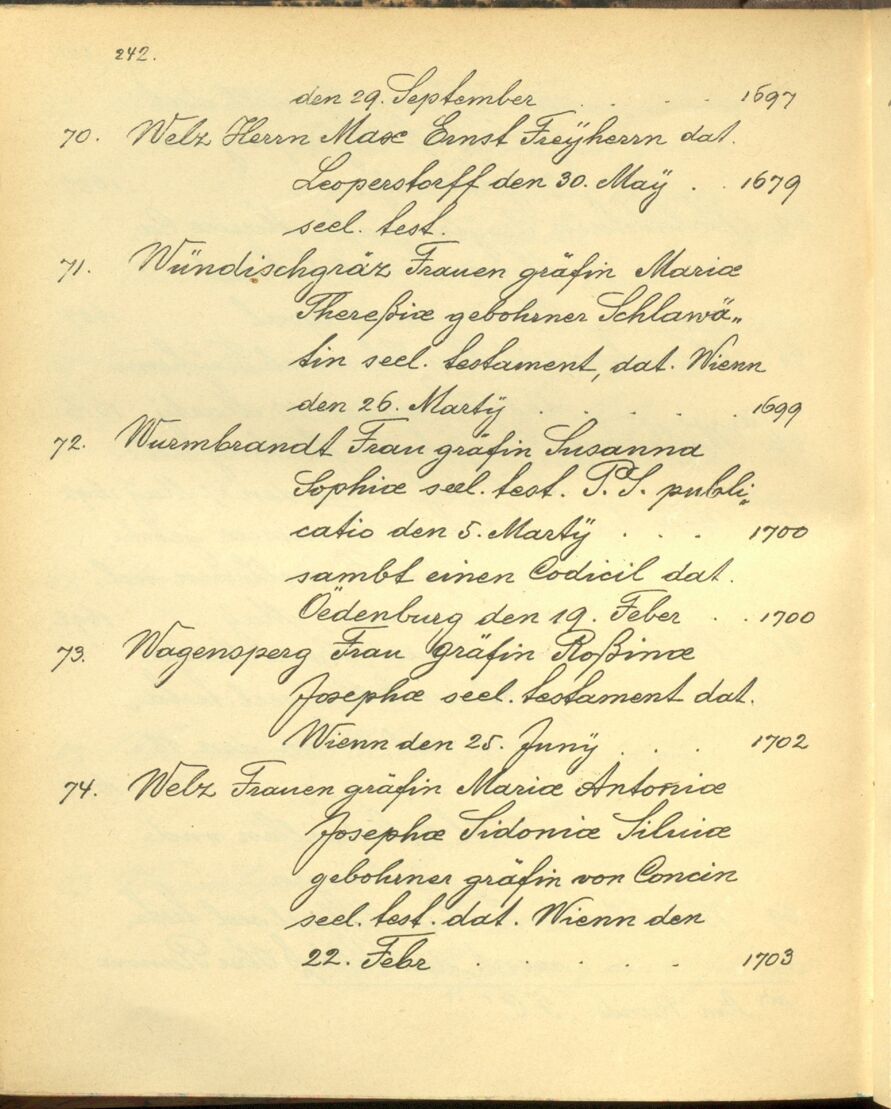 242.
den 29. September . . . . 1697
70. Welz Herrn Max Ernst Freÿherrn dat.
Leoperstorff den 30. Maÿ . . 1679
seel. test.
71. Wündischgräz Frauen gräfin Mariæ
Thereßiæ gebohrner Schlawä„
tin seel. testament, dat. Wienn
den 26. Martÿ . . . . . 1699
72. Wurmbrandt Frau gräfin Susanna
Sophiæ seel. test. P.S. publi„
catio den 5. Martÿ . . . 1700
sambt einen Codicil dat.
Oedenburg den 19. Feber . . 1700
73. Wagensperg Frau gräfin Roßinæ
Josephæ seel. testament dat.
Wienn den 25. Junÿ . . . 1702
74. Welz Frauen gräfin Mariæ Antoniæ
Josephæ Sidoniæ Siluiæ
gebohrner gräfin von Concin
seel. test. dat. Wienn den
22. Febr . . . . 1703